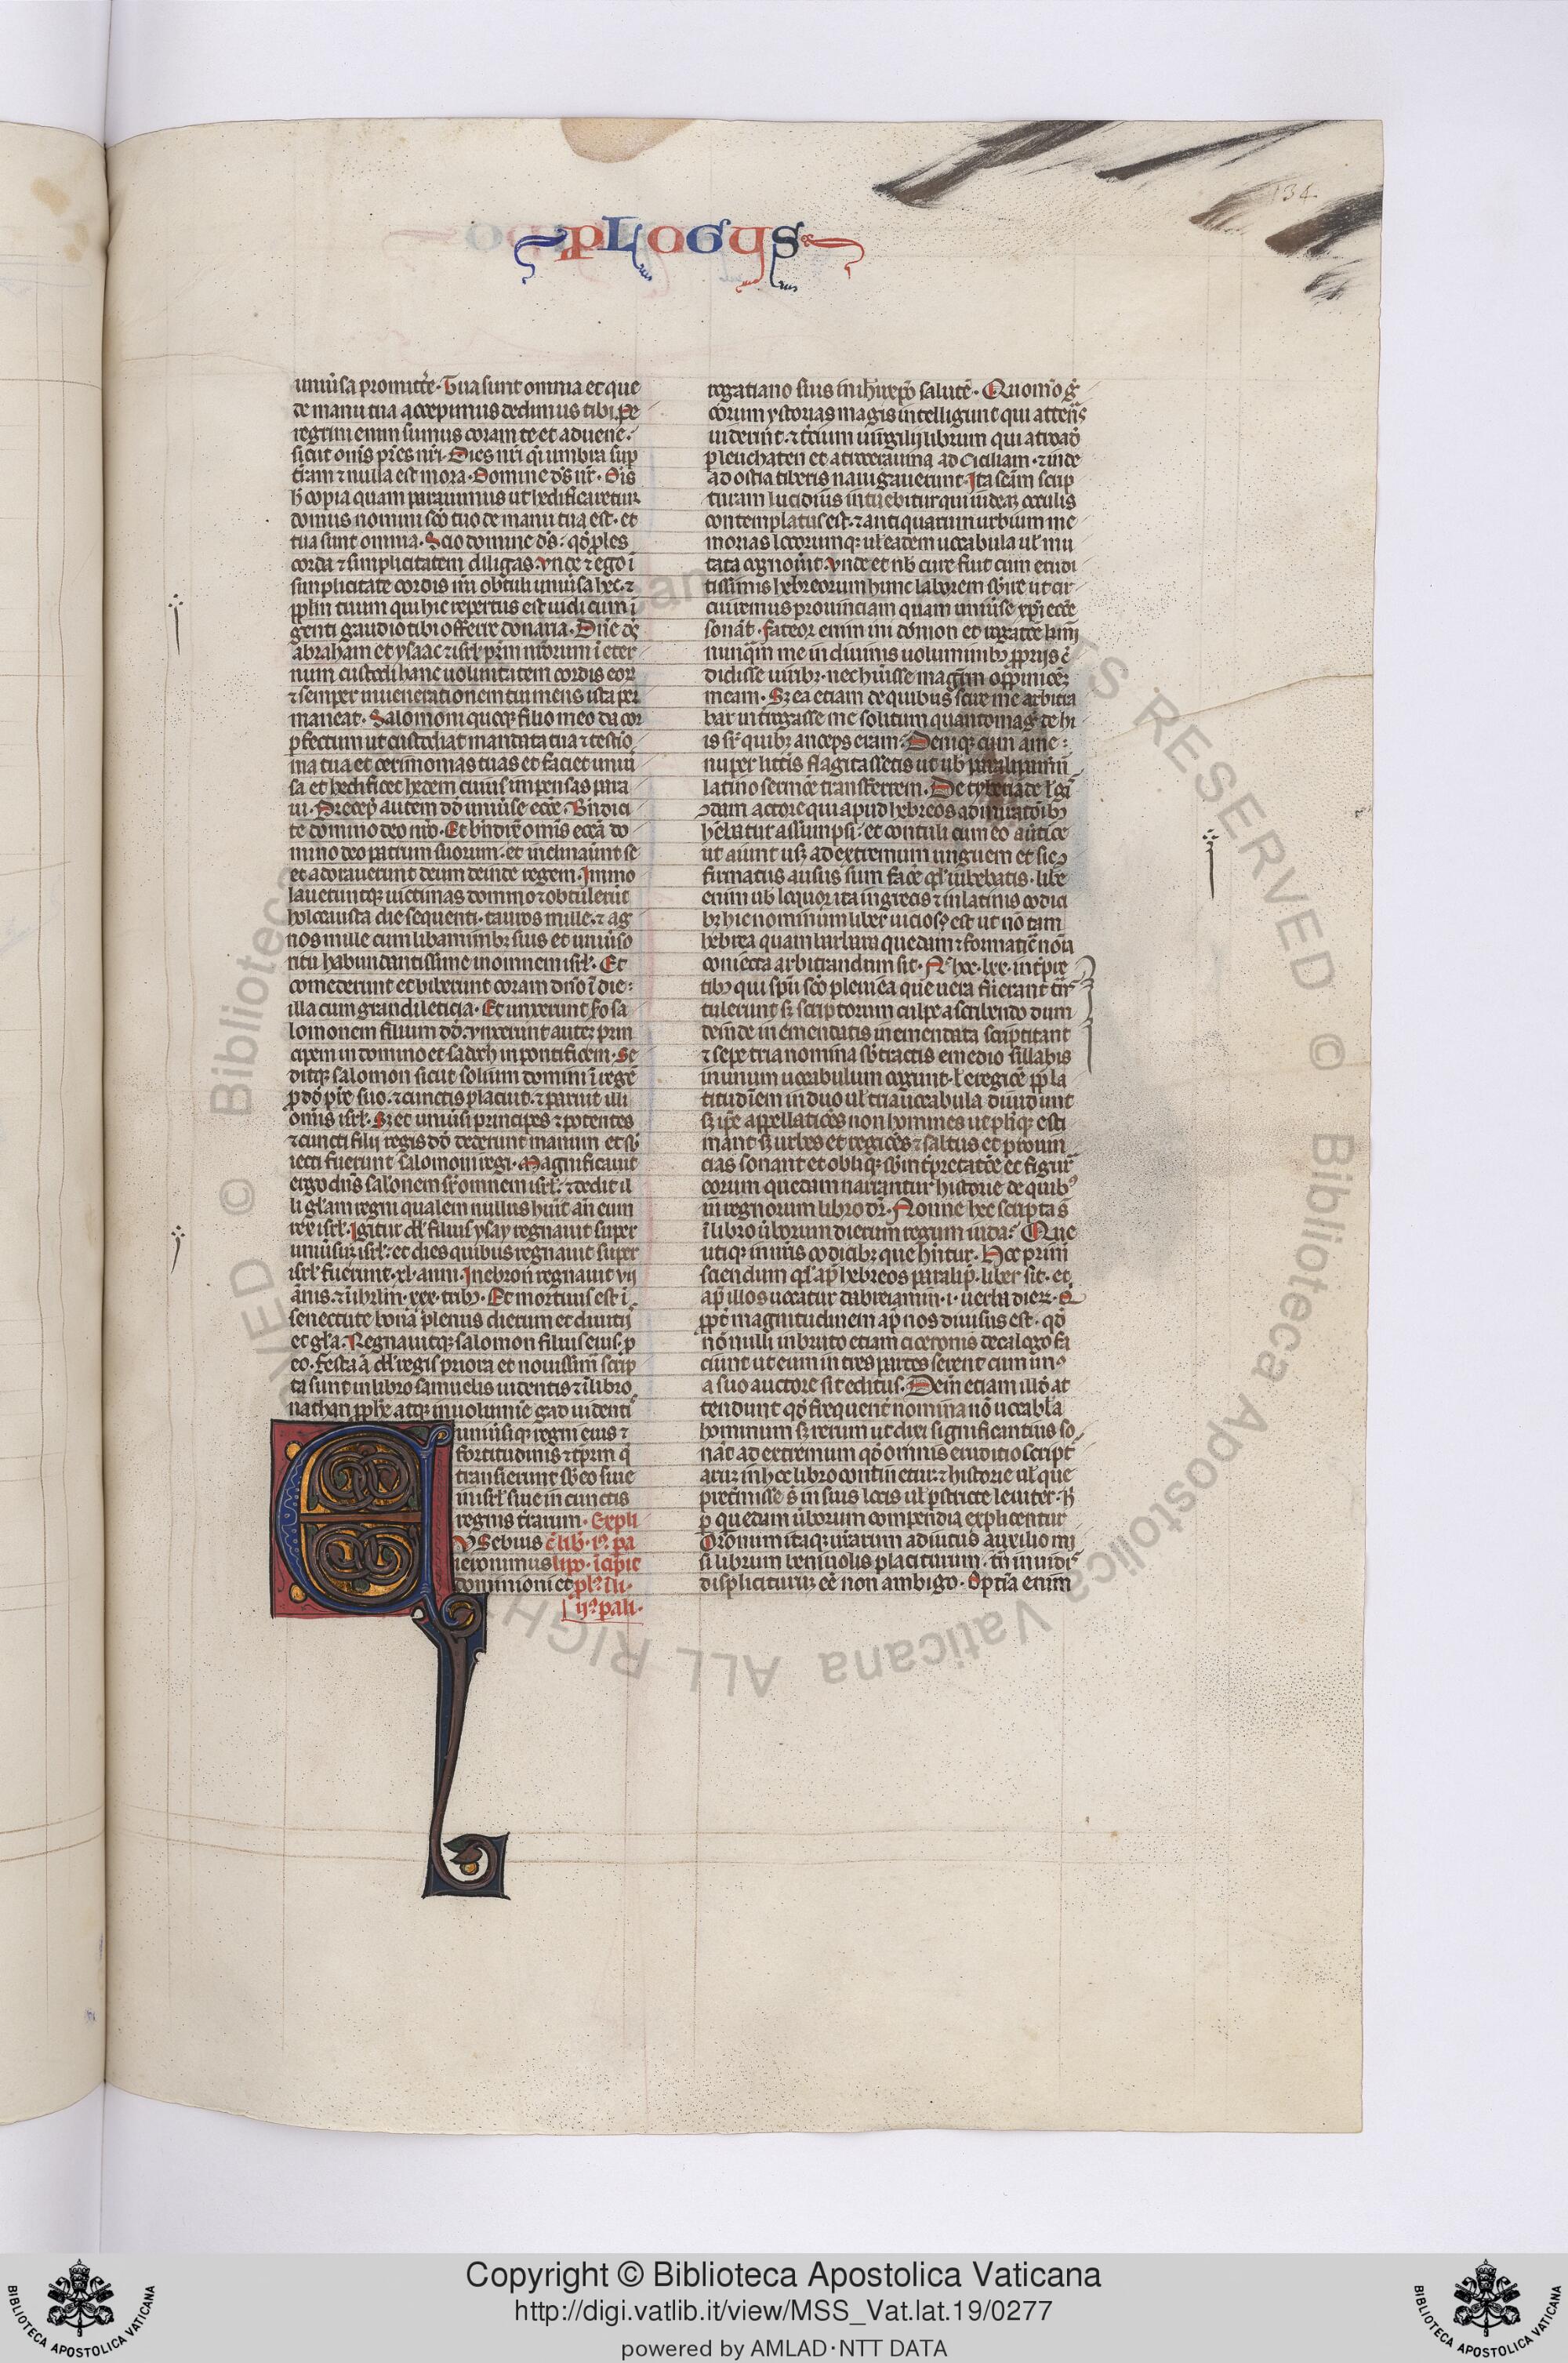 134
PLOGUS
uniu̓sa promitte̓. Tua sunt omnia et que
de manu tua accepimus dedimus tibi. Pe
regrini enim sumus coram te et aduene.
sicut om̄s pr̄es nr̄i. Dies nr̄i q̄i umbra sup̄
tr̄am ⁊ nulla est mora. Domine ds̄ nr̄. Ois
h̄ copia quam parauimus ut hedificaretur
domus nomini sc̄o tuo de manu tua est. et
tua sunt omnia. Scio domine ds̄: qd̄ p̱les
corda ⁊ simplicitatem diligas. Vnde ⁊ ego ī
simplicitate cordis mi obtuli uniu̓sa hec. ⁊
pp̄lm tuum qui hic repertus est uidi cum ī
genti gaudio tibi offerre donaria. Dn̄e ds̄
abraham et ysaac ⁊ isrl̄ pr̄m nr̄orum ī eter
num custodi hanc uoluntatem cordis eorꝝ
⁊ semper in uenerationem tui mens ista per
maneat. Salomoni quoqꝫ filio meo da cor
p̱fectum ut custodiat mandata tua ⁊ testio
nia tua et cerimonias tuas et faciet uniu̓
sa et hedificet hedem cuius inpensas para
ui. Precep̄ autem dd̄ uniu̓se eccē. Bn̄dici
te domino deo nr̄o. Et bn̄dix̄ om̄is eccā do
mino deo patrum suorum. et inclinauu̓nt se
et adorauerunt deum deinde regem. Immo
laueruntqꝫ uictimas domino ⁊ obtulerūt
holocausta die sequenti. tauros mille. ⁊ ag
nos mille cum libaminibꝫ suis et uniu̓so
ritu habundantissime in omnem isrl̄. Et
comederunt et biberunt coram dn̄o ī die
illa cum grandi leticia. Et unxerunt so sa
lomonem filium dd̄. Vnxerunt autem prin
cipem in domino et sadoch in pontificem. Se
ditqꝫ salomon sicut solium domini ī regē
p̱ dd̄ pr̄e suo. ⁊ cunctis placuit. ⁊ paruit illi
omīs isrl̄. Sꝫ et uniu̓si principes ⁊ potentes
⁊ cuncti filij regis dd̄ dederunt manum et sb̓
iecti fuerunt salomoni regi. Magnificauit
ergo dn̄s salonem sr̄ omnem isrl̄. ⁊ dedit il
li gl̄am regni qualem nullus hūit an̄ eum
rex isrl̄. Igitur dd̄ filius ysay regnauit super
uniu̓sum isrl̄. et dies quibus regnauit super
isrl̄ fuerunt. xl. anni. In ebron regnauit vij
annis. ⁊ ī ihrl̄m. xxx. tribꝰ. Et mortuus est ī
senectute bona plenus dierum et diuitijs
et gl̄a. Regnauitqꝫ salomon filius eius. p̱
eo. Gesta ā dd̄ regis priora et nouissim̄ scrip
ta sunt in libro samuelis uidentis ⁊ ī libro
nathan pp̄he atqꝫ in uolumīe gad uidentis
uniu̓siqꝫ regni eius ⁊
fortitudinis ⁊ tp̄rm q̄
transierunt sb̓ eo siue
in isrl̄ siue in cunctis
regnis tr̄arum. Expli
VSebius c̄ lib. i. pa
ieronimus lipo. īcipit
dominioni et pl̄. ī li.
ij. pali.
rogatiano suis in ih̄u xp̄o salutē. Quomō g̓
corum ystorias magis intelligunt qui athen̄s
uiderint. ⁊ tc̓ium uirgilij librum qui a troad̓
p̱ leuchaten et acroceraunia ad ciciliam. ⁊ inde
ad ostia tiberis nauigauerunt. Ita scām scrip
turam lucidius intuebitur qui iudeaꝫ oculis
contemplatus est. ⁊ antiquarum urbium me
morias locorumqꝫ ul̓ eadem uocabula ul̓ mu
tata cognou̓it. Vnde et nb̓ cure fuit cum erudi
tissimis hebreorum hunc laborem sb̓ire ut cir
cuiremus prouinciam quam uniu̓se xp̄i eccē
sonāt. Fateor enim mi domion et rogatiane karissimi
nunqͣm me in diuinis uoluminibꝰ pp̄rijs c̓
didisse uiribꝫ. nec habuisse magr̄m oppinionē
meam. Sꝫ ea etiam de quibus scire me arbitra
bar interogasse me solitum quantomag̓ de hi
is sr̄ quibꝫ anceps eram. Deniqꝫ cum a me
nuper litt̄is flagitassetis ut ub̓ paralipom̄
latino sermōe transferrem. De tyberiade l̓gi
dam actore qui apud hebreos admiratōibꝰ
hr̄ebatur assumpsi. et contuli cum eo a u̓tice
ut aiunt usqꝫ ad extremum unguem et sic ꝯ
firmatus ausus sum face̓ qd̄ iubebatis. libe
enim ub̓ loquor ita in grecis ⁊ in latinis codici
bꝫ hic nominum liber uiciosꝰ est ut nō tam
hebrea quam barbara quedam ⁊ sormatica nōia
coniecta arbitrandum sit. Nͨ hoc. lxx. int̓pre
tibꝰ qui sp̄u sc̄o pleni ea que uera fuerant tn̄s
tulerunt sꝫ scriptorum culpe ascribendo dum
deinde inemendatis inemendata scriptitant
⁊ sepe tria nomina sb̓tractis e medio sillabis
in unum uocabulum cogunt. l̓ e regiōe pp̄ la
titudinem in duo ul̓ tria uocabula diuidunt
sꝫ ip̄e appellatiōes non homines ut pliqꝫ esti
mant sꝫ urbes et regiōes ⁊ saltus et prouin
cias sonant et obliqꝫ sb̓ int̓pretatōe et figur̓
eorum quedam narrantur historie de quibꝰ
in regnorum libro dr̄. Nonne hec scripta s̄
ī libro u̓borum dierum regum iuda? Que
utiqꝫ in nr̄is codicibꝫ que hn̄tur. Hoc primū
sciendum qd̄ ap̄ hebreos paralip̄. liber sit. et
ap̄ illos uocatur dabreiamin. i. uerba dierꝝ. Q
pp̄t magnitudinem ap̄ nos diuisus est. qd̄
nō nulli in bruto etiam ciceronis decalogo fa
ciunt ut eum in tres partes secent cum unꝰ
a suo auctore sit editus. Dein etiam illd̄ at
tendunt qd̄ frequenter nomina nō uocabl̓a
hominum sꝫ rerum ut dixi significantius so
nāt ad extremum qd̄ omnis eruditio script
araꝝ in hoc libro continetur. ⁊ historie ul̓ que
pret̓misse s̄ in suis locis ul̓ p̱stricte leuiter. h̄
p̱ quedam u̓borum compendia explicentur
Oronum itaqꝫ uṙarum adiutus auxilio mi
si librum beniuolis placiturum. tn̄ inuidis
displiciturū eē non ambigo. Optīa enim
Copyright © Biblioteca Apostolica Vaticana
http://digi.vatlib.it/view/MSS_Vat.lat.19/0277
powered by AMLAD·NTT DATA
BIBLIOTECA APOSTOLICA VATICANA
BIBLIOTECA APOSTOLICA VATICANA